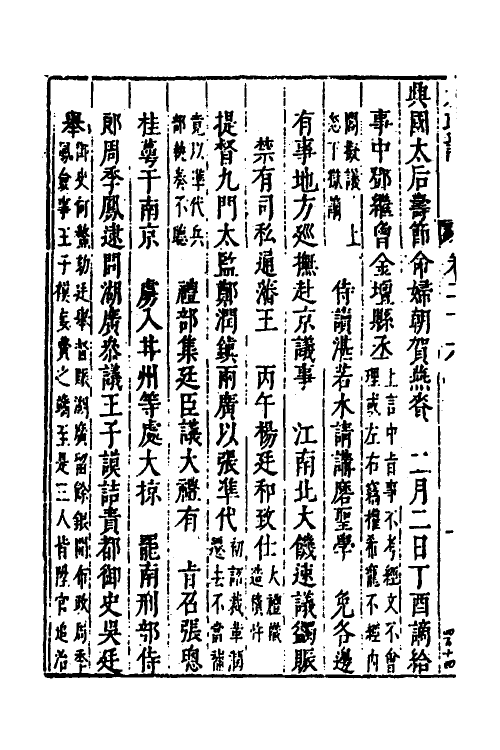 興國太后壽節命婦朝賀燕賚　二月二日丁酉謫給
事中鄧繼曾金壇縣丞
上言中旨事不考經文不會
理或左右竊權希寵不經內
閣數議　上
怒下獄謫
侍讀湛若水請講磨聖學　免各邊
有事地方巡撫赴京議事　江南北大饑速議蠲賑
禁有司私通藩王　丙午楊廷和致仕
大禮議
提督九門太監鄭潤鎮兩廣以張準代
初詔裁革潤
去不當補
竟以準代兵
部執奏不聽
禮部集廷臣議大禮有　旨召張璁
桂萼于南京　虜入井州等處大掠　罷南刑部侍
郎周季鳳逮問湖廣叅議王子謨詰責都御史吳廷
舉
御史何鰲劾廷舉督賑湖廣留餘銀聞布政周季
鳳僉事王子謨
費之
至是三人皆陞官追治
卷二十六
四十四